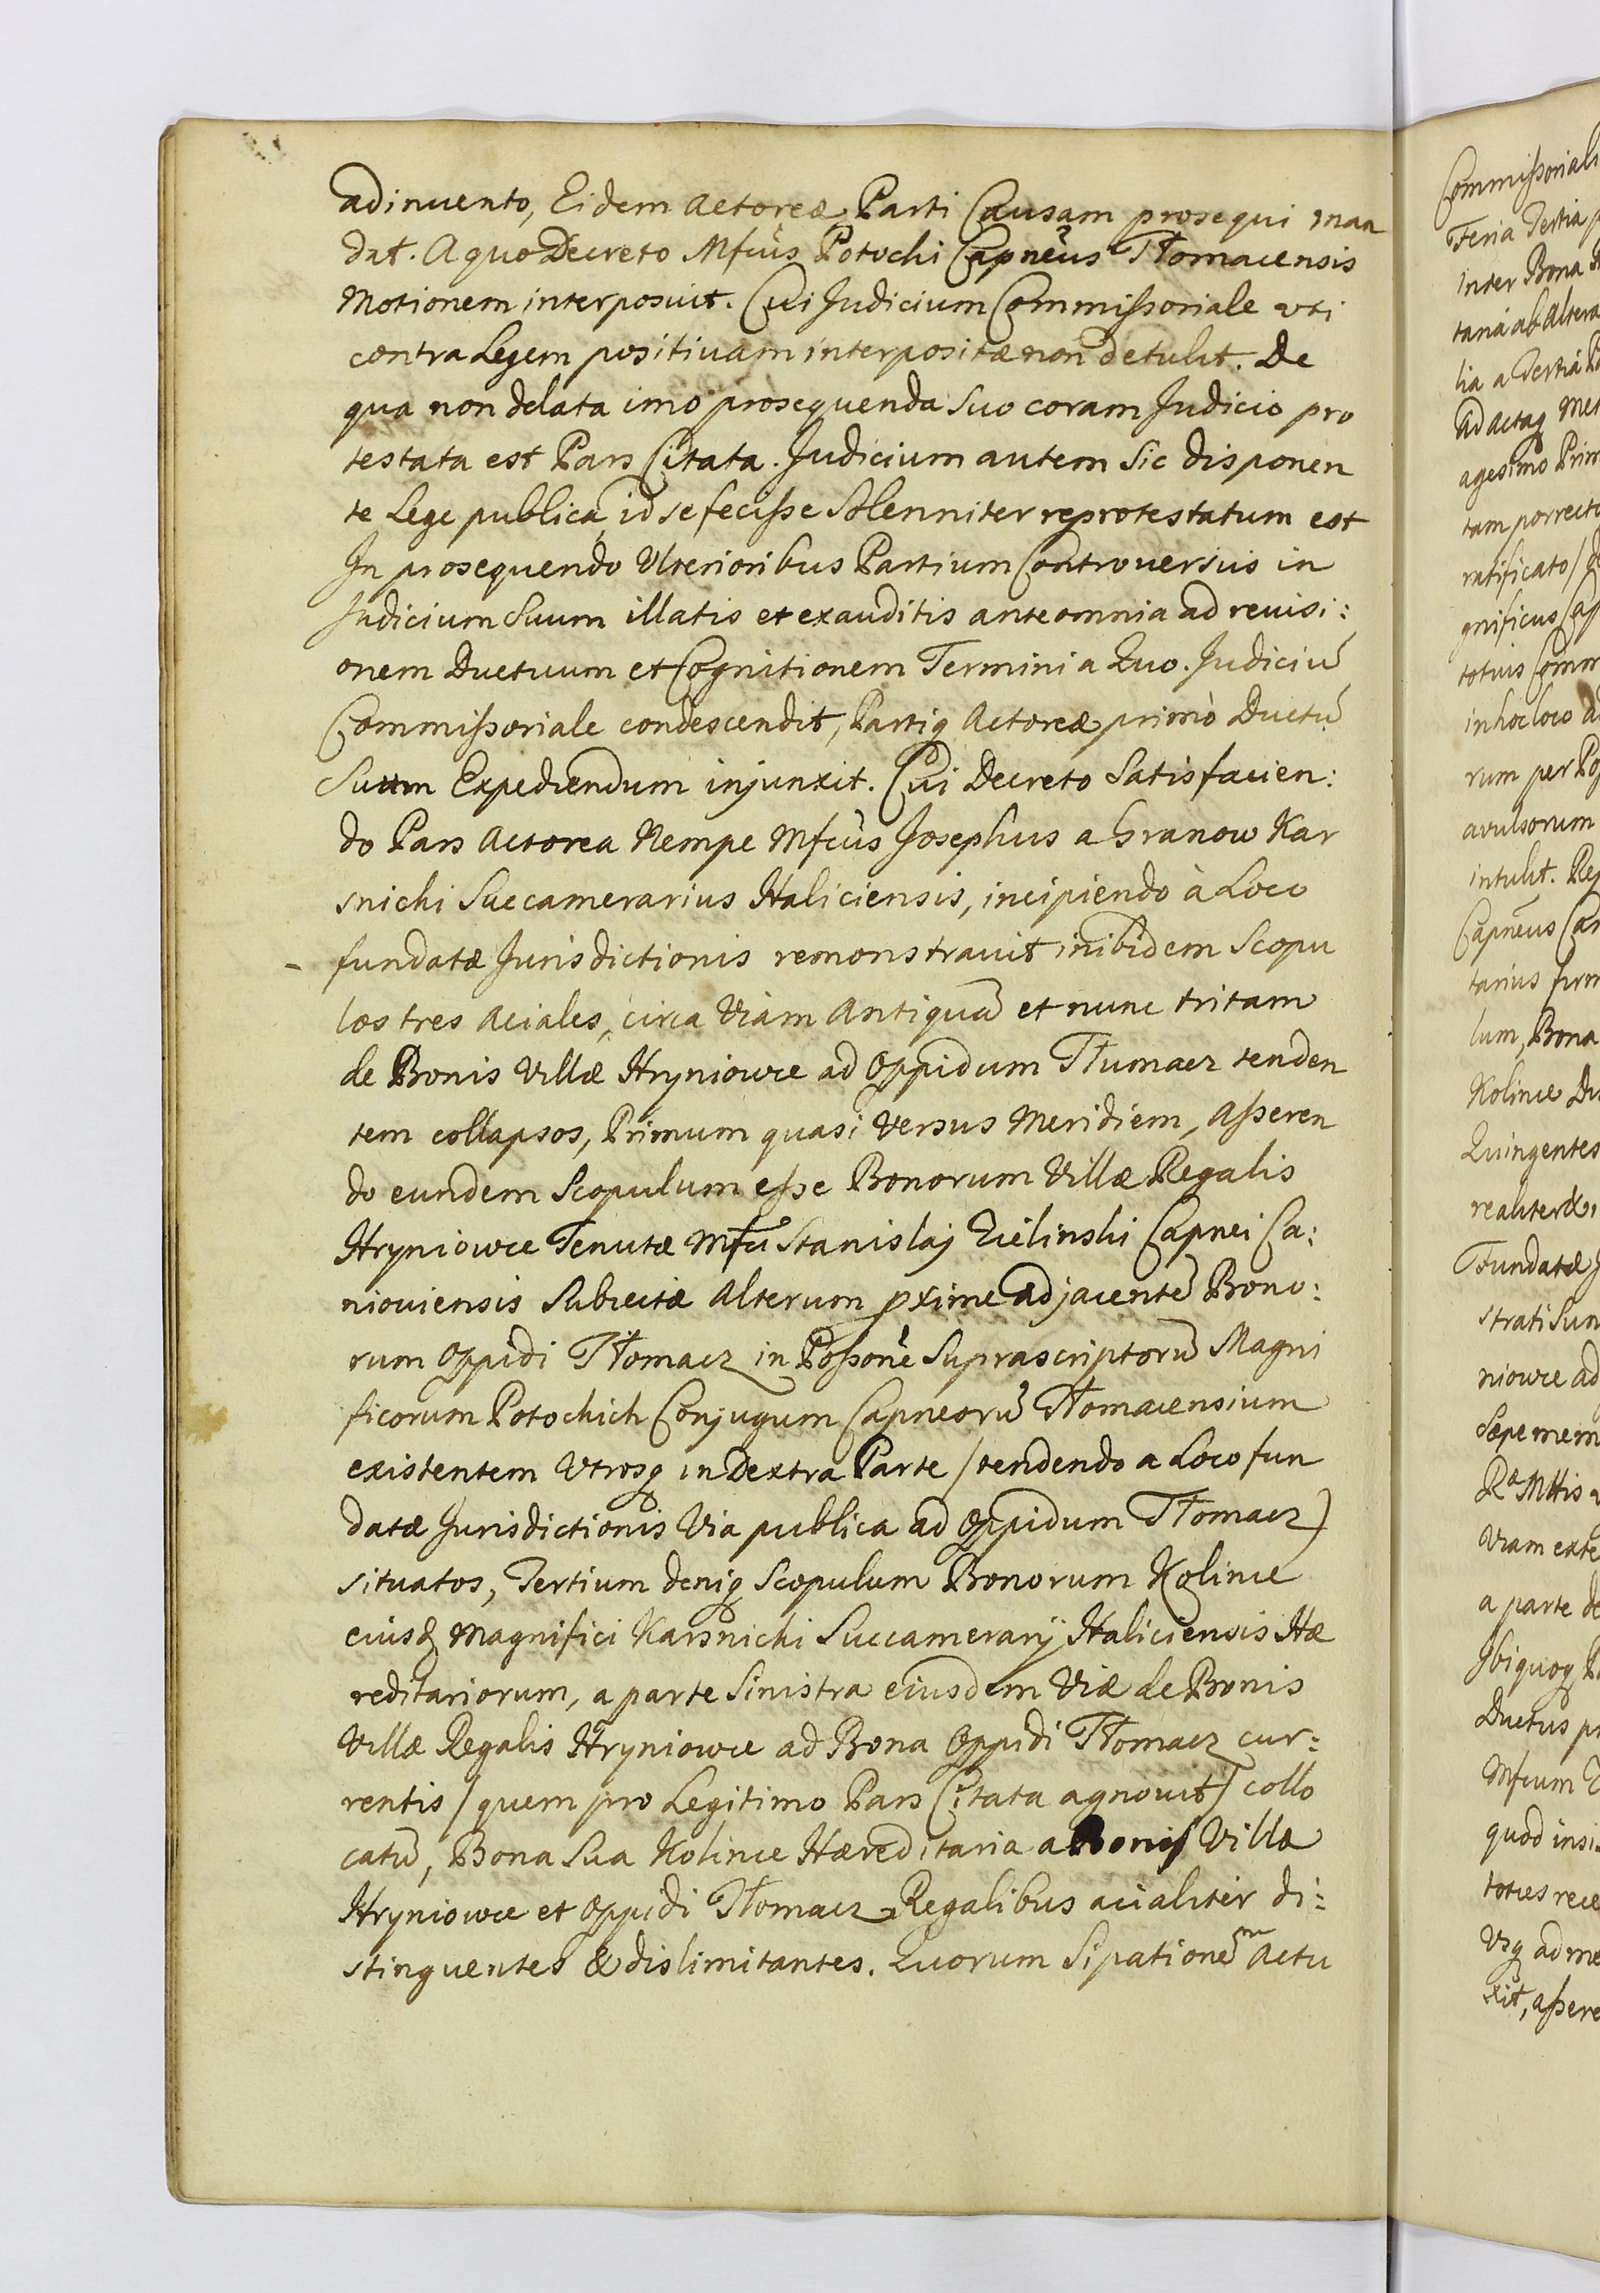 adinuento, Eidem Actoreæ Parti Causam prosequi man
dat. A quo Decreto Mfcus Potocki Capneus Tłomacensis
Motionem interposuit. Cui Judicium Commissoriale uti
contra Legem positivam interpositæ non detulit. De
qua non delata imo prosequenda suo coram Judicio pro
testata est Pars Citata. Judicium autem sic disponen
te Lege publica, id se fecisse solenniter reprotestatum est
In prosequendo Ulterioribus Partium Controversiis in
Judicium Suum illatis et exauditis ante omnia ad revisi:
onem Ductuum et Cognitionem Termini a Quo. Judiciũ
Commissoriale condescendit, Partiq Actoreæ primò Ductũ
Suum Expediendum injunxit. Cui Decreto Satisfacien:
do Pars Actorea Nempe Mfcus Josephus a Granow Kar
snicki Succamerarius Haliciensis, incipiendo à Loco
fundatæ Jurisdictionis remonstravit inibidem Scopu
los tres Aciales, circa Viam Antiquã et nunc tritam
de Bonis Villæ Hryniowce ad Oppidum Tłumacz tenden
tem collapsos, Primum quasi versus Meridiem, Asseren
do eundem Scopulum esse Bonorum Villæ Regalis
Hryniowce Tenutæ Mfci Stanislaj Zielinski Capnei Ca:
nioviensis Subiectæ Alterum pxime adjacentẽ Bono:
rum Oppidi Tłomacz in Possone Suprascriptorũ Magni
ficorum Potockich Conjugum Capneorũ Tłomacensium
existentem Utrosq in Dextra Parte /tendendo a Loco fun
datæ Jurisdictionis Via publica ad Oppidum Tłomacz)
situatos, Tertium deniq Scopulum Bonorum Kolince
eiusd Magnifici Karsnicki Succamerarij Haliciensis Hæ
reditariorum, a parte Sinistra eiusdem Viæ de Bonis
Villæ Regalis Hryniowce ad Bona Oppidi Tłomacz cur:
rentis /quem pro Legitimo Pars Citata agnovit/ collo
catũ, Bona Sua Kolince Hæreditaria a Bonis Villæ
Hryniowce et Oppidi Tłomacz Regalibus acialiter di:
stinguentes & dislimitantes. Quorum Sipationẽm Actu
Commissoriali
Feria Tertia
inter Bona
taria ab Altera
lia a Tertia
ad actaq
agesimo
tam porrect
ratificato
gnificus
totius
in hoc loco
rum per
avulsorum
intulit.
Capneus
tarius
lum, Bona
Kolince
Quingentes
realiter
Fundatæ
strati
niowce ad
Sæpe mem
Rᵃ Mttis
Viam exte
a parte de
Ibi quoq
Ductus
Mfcum
quod insi
toties rece
Usq ad me
xit, assere